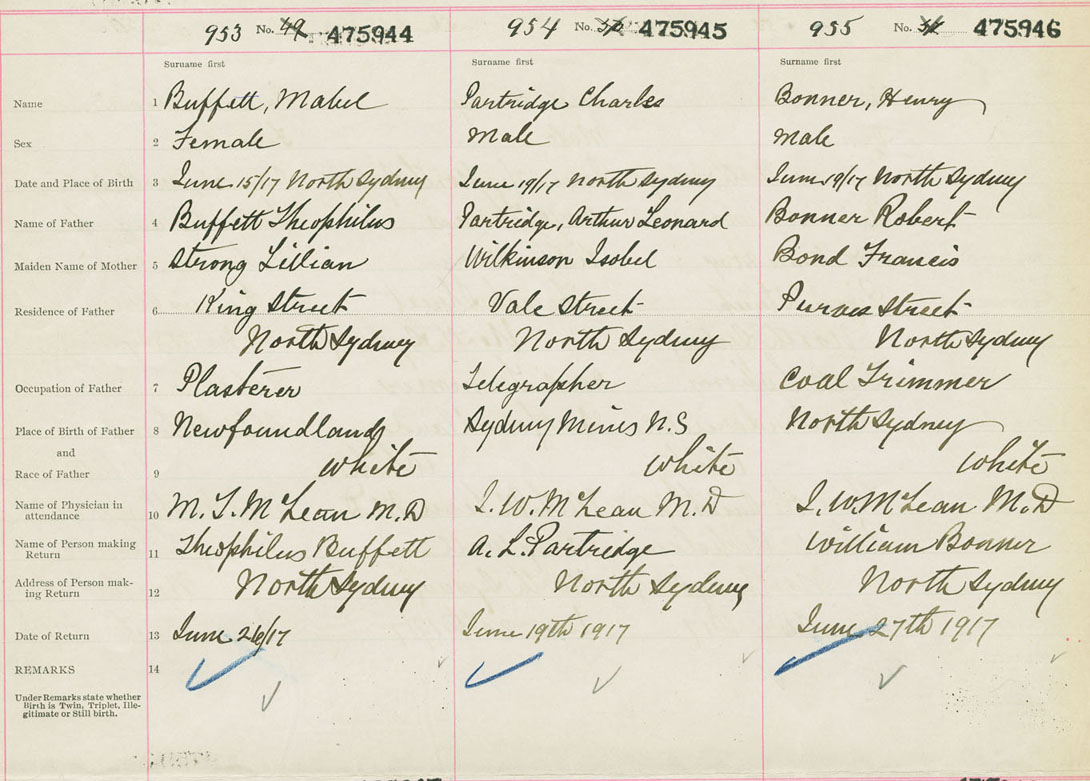 953 No. 49 475944 954 No. 475945 955 No. 475946
Surname first Surname first Surname first
Name 1 Buffett, Mabel Partridge Charles Bonner, Henry
Sex 2 Female Male Male
Date and Place of Birth 3 June 15/17 North Sydney June 19/17 North Sydney June 19/17 North Sydney
Name of Father 4 Buffett Theophilus Partridge, Arthur Leonard Bonner Robert
Maiden Name of Mother 5 Strong Lillian Wilkinson Isobel Bond Francis
Residence of Father 6 King Street Vale Street Purves Street
North Sydney North Sydney North Sydney
Occupation of Father 7 Plasterer Telegrapher Coal Trimmer
Place of Birth of Father 8 Newfoundland Sydney Mines N.S North Sydney
and
Race of Father 9 White White White
Name of Physician in
attendance 10 M. T. McLean M.D I. W. McLean M.D I. W. McLean M.D
Name of Person making
Return 11 Theophilus Buffett A. L. Partridge William Bonner
Address of Person mak-
ing Return 12 North Sydney North Sydney North Sydney
Date of Return 13 June 26/17 June 19th 1917 June 27th 1917
REMARKS 14
Under Remarks state whether
Birth is Twin, Triplet, Ille-
gitimate or Still birth.